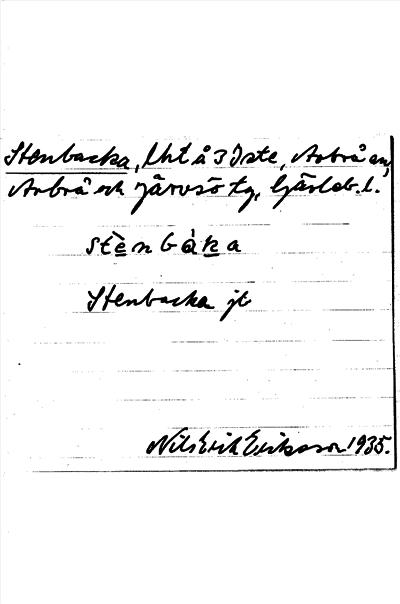 Stenbacka, lht å 3 Iste, Arbrå sn,
Arbrå och Järvsö tg, Gävleb. l.
stènbàka
Stenbacka jt
Nils Erik Eriksson 1935.